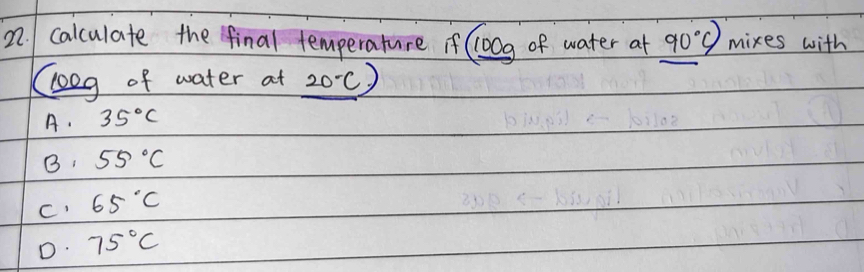 22. Calculate the final temperature if (100g of water at 90°C) mixes with
(100g of water at 20°C)
A. 35°C
B. 55°C
C. 65°C
D. 75°C